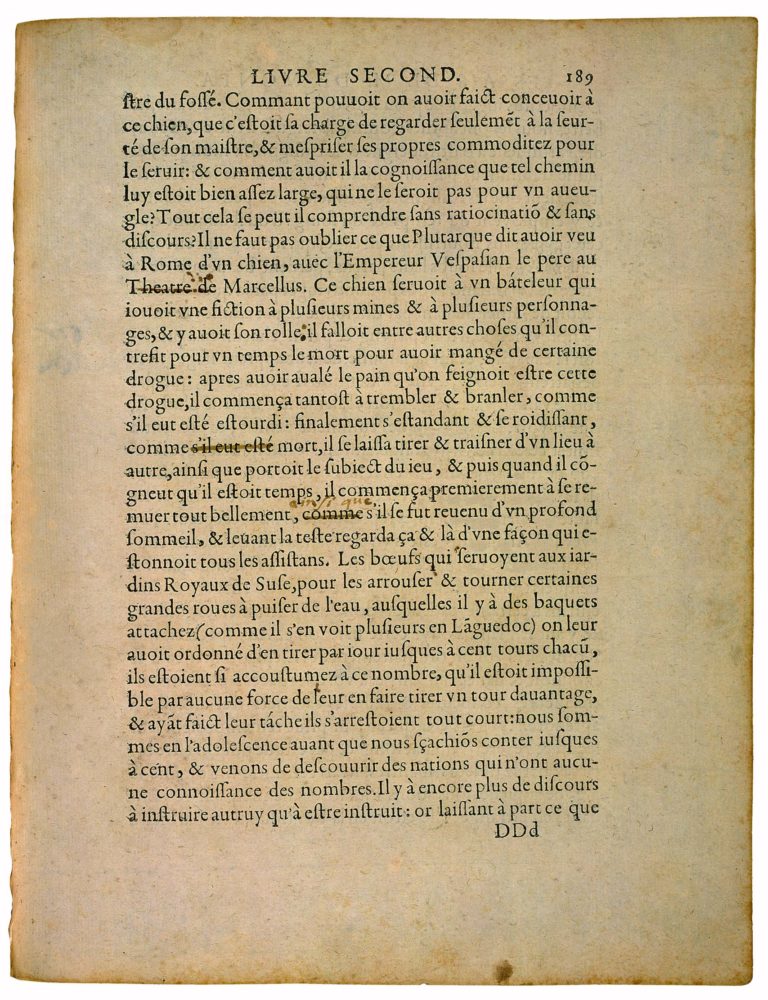 LIVRE SECOND. 189
ſtre du foſſé. Commant pouuoit on auoir faict conceuoir à
ce chien, que c'eſtoit ſa charge de regarder ſeulemēt à la ſeur-
té de ſon maiſtre, & meſpriſer ſes propres commoditez pour
le ſeruir: & comment auoit il la cognoiſſance que tel chemin
luy eſtoit bien aſſez large, qui ne le ſeroit pas pour vn aueu-
gle? Tout cela ſe peut il comprendre ſans ratiocinatiõ & ſans
diſcours? Il ne faut pas oublier ce que Plutarque dit auoir veu
à Rome d'vn chien, auec l'Empereur Veſpaſian le pere au
Theatre de Marcellus. Ce chien ſeruoit à vn báteleur qui
iouoit vne fiction à pluſieurs mines & à pluſieurs perſonna-
ges, & y auoit ſon rolle, il falloit entre autres choſes qu'il con-
trefit pour vn temps le mort pour auoir mangé de certaine
drogue: apres auoir aualé le pain qu'on feignoit eſtre cette
drogue, il commença tantoſt à trembler & branler, comme
s'il eut eſté eſtourdi: finalement s'eſtandant & ſe roidiſſant,
comme s'il eut eſté mort, il ſe laiſſa tirer & traiſner d'vn lieu à
autre, ainſi que portoit le ſubiect du ieu, & puis quand il cõ-
gneut qu'il eſtoit temps, il commença premierement à ſe re-
ainsi que
muer tout bellement, comme s'il ſe fut reuenu d'vn profond
ſommeil, & leuant la teſte regarda ça & là d'vne façon qui e-
ſtonnoit tous les aſſiſtans. Les bœufs qui ſeruoyent aux iar-
dins Royaux de Suſe, pour les arrouſer & tourner certaines
grandes roues à puiſer de l'eau, auſquelles il y à des baquets
attachez (comme il s'en voit pluſieurs en Lãguedoc) on leur
auoit ordonné d'en tirer par iour iuſques à cent tours chacũ,
ils eſtoient ſi accouſtumez à ce nombre, qu'il eſtoit impoſſi-
ble par aucune force de leur en faire tirer vn tour dauantage,
& ayãt faict leur táche ils s'arreſtoient tout court: nous ſom-
mes en l'adoleſcence auant que nous ſçachiõs conter iuſques
à cent, & venons de deſcouurir des nations qui n'ont aucu-
ne connoiſſance des nombres. Il y à encore plus de diſcours
à inſtruire autruy qu'à eſtre inſtruit: or laiſſant à part ce que
DDd